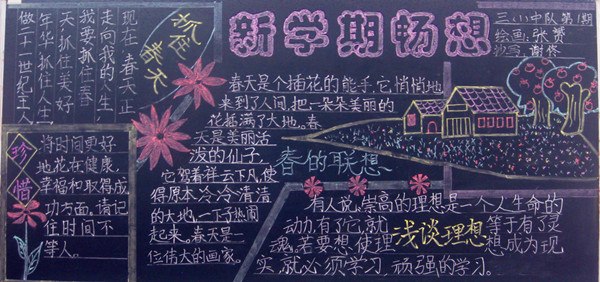 新学期畅想
三(1)中队第1期
绘画:张
抄写:谢
抓住春天
现在,春天正
走向我的人生,
我要抓住春
天,抓住美好
年华,抓住人生,
做二十一世纪主人
珍惜
将时间更好
地花在健康,
幸福和取得成
功方面。请记
住时间不
等人。
春天是个插花的能手,它悄悄地
来到了人间,把一朵朵美丽的
花插满了大地。春
天是美丽活
泼的仙子,
它驾着祥云下凡,使
得原本冷冷清清
的大地,一下子热闹
起来。春天是一
位伟大的画家。
春的联想
浅谈理想
有人说,崇高的理想是一个人生命的
动力,有了它,就等于有了灵
魂,若要想使理想成为现
实,就必须学习,顽强的学习。